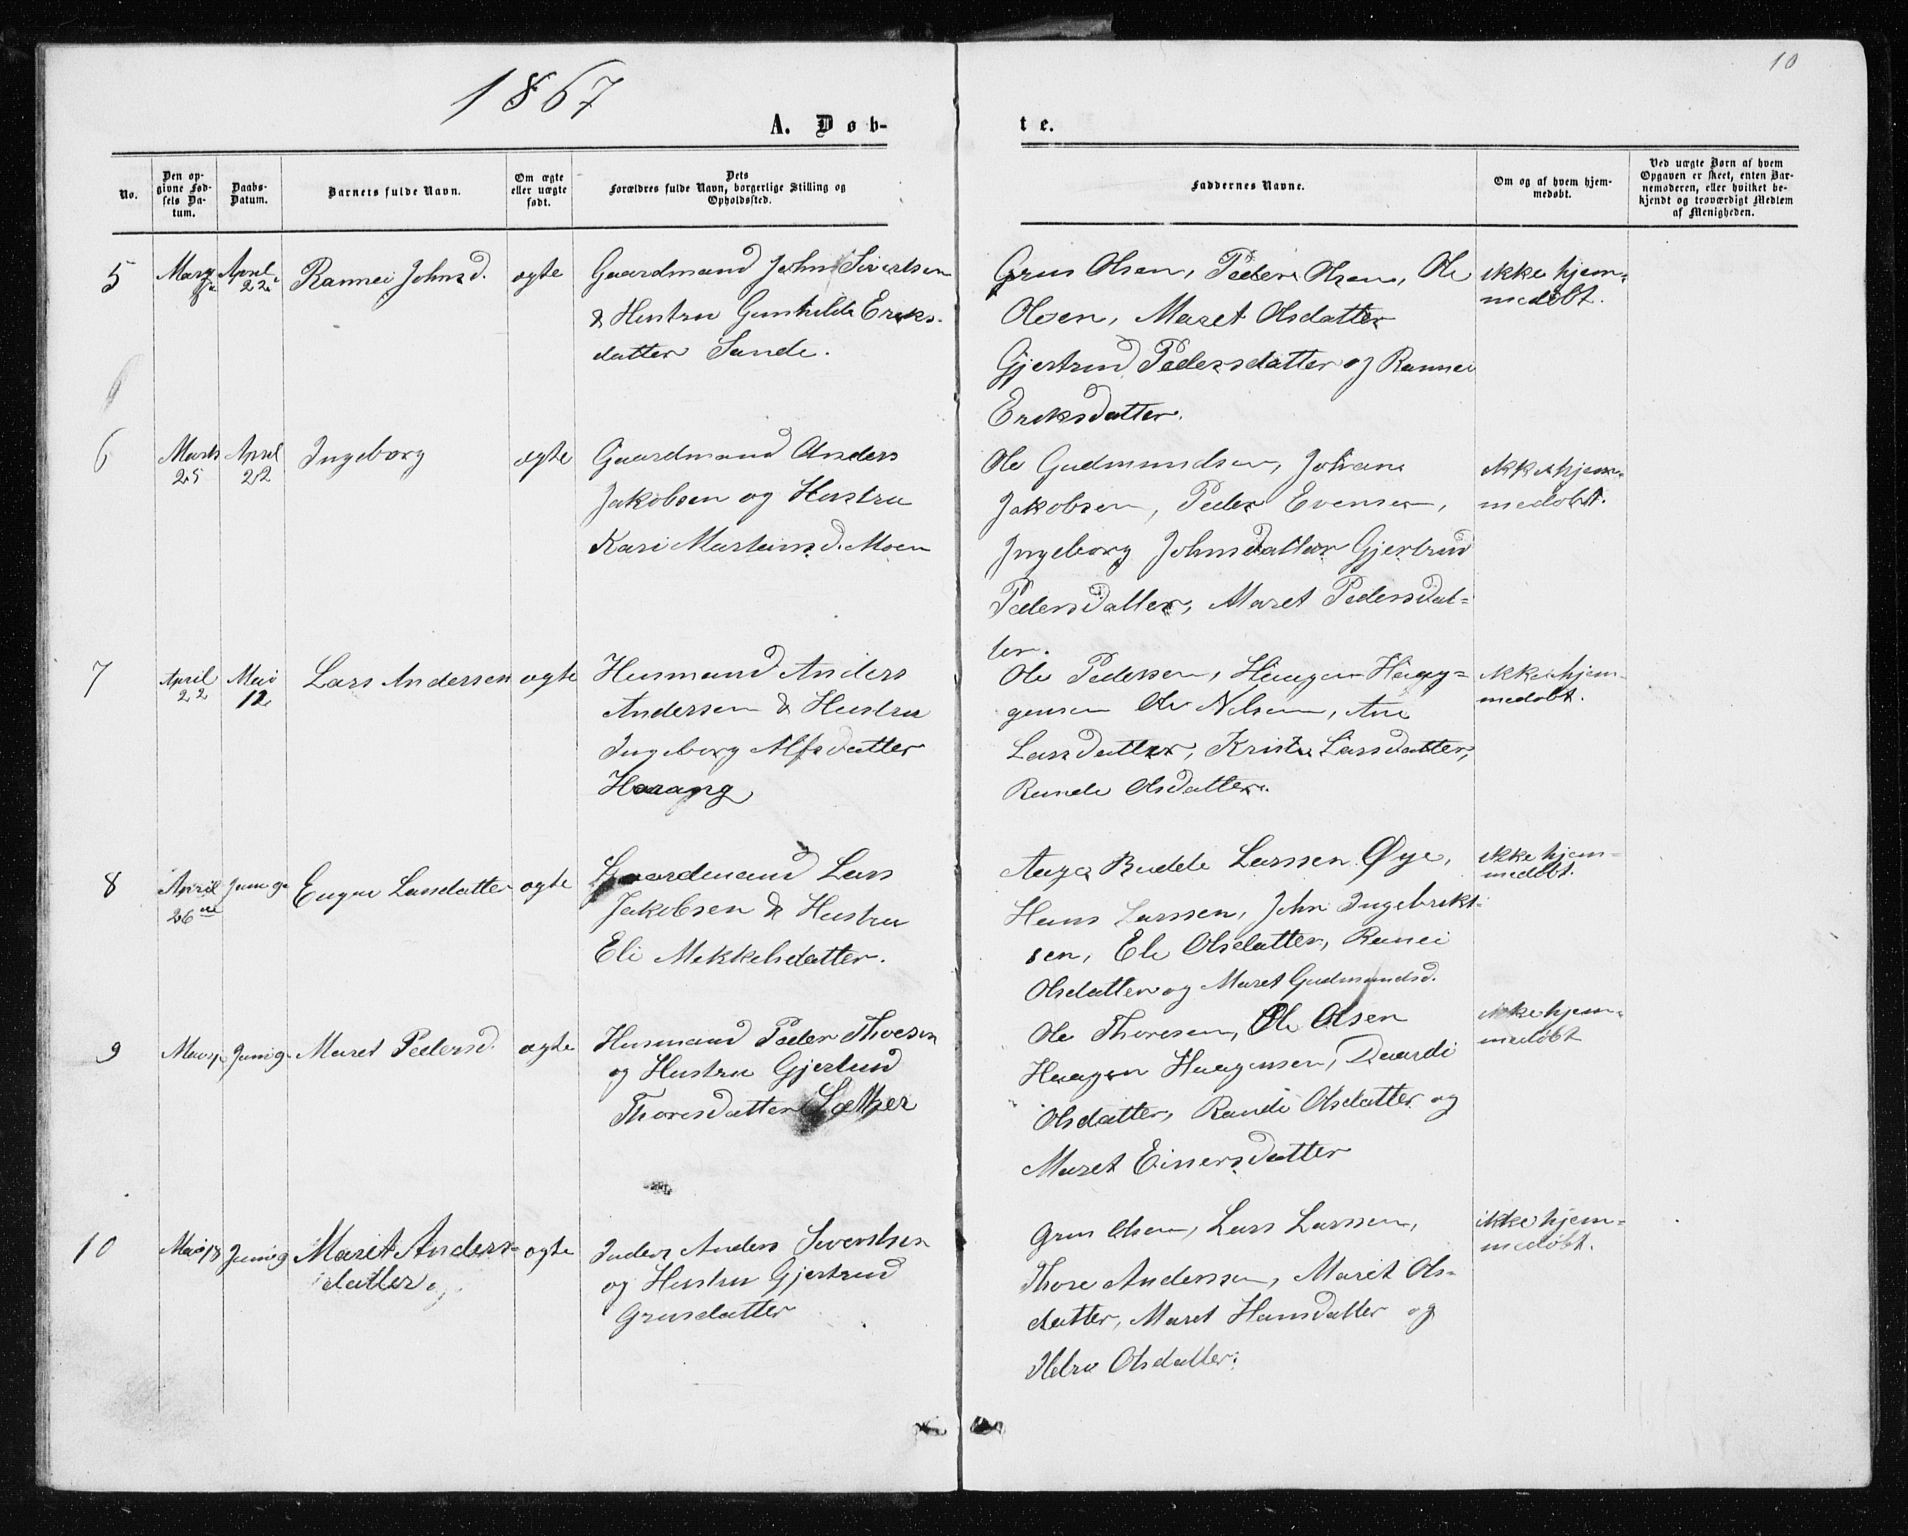 10
1867
A. Døb-
te.
No.
Den op-
givne Fød-
sels Da-
tum.
Daabs-
Datum.
Barnets fulde Navn.
Om ægte
eller uægte
født.
Dets
Forældres fulde Navn, borgerlige Stilling og
Opholdssted.
Faddernes Navne.
Om og af hvem hjem-
medøbt.
Ved uægte Børn af hvem
Opgaven er skeet, enten Bar-
nemoderen, eller hvilket be-
kjendt og troværdigt Medlem
af Menigheden.
5
April
22
Rannei Johnsd.
ægte
Gaardmand John Sivertsen
& Hustru Gunhilde Eriks-
datter Sande.
Grus Olsen, Peder Olsen, Ole
Olsen, Maret Olsdatter
Gjertrud Pedersdatter og Rannei
Eriksdatter.
ikke hjem-
medøbt.
6
Marts
25
April
22
Ingeborg
ægte
Gaardmand Anders
Jakobsen og Hustru
Kari Martinsd. Moen
Ole Gudmundsen, Johan
Jakobsen, Peder Evensen,
Ingeborg Johnsdatter Gjertrud
Pedersdatter, Maret Pedersdat-
ter.
ikke hjem-
medøbt.
7
April
22
Mai
12
Lars Andersen
ægte
Husmand Anders
Andersen & Hustru
Ingeborg Alfsdatter
Haarang
Ole Pedersen, Haagen Haag-
gensen Ole Nilsen, Ane
Larsdatter, Kristi Larsdatter,
Rande Olsdatter.
ikke hjem-
medøbt.
8
April
26
Juni 9
Larsdatter
ægte
Gaardmand Lars
Jakobsen & Hustru
Eli Mekkelsdatter.
Aage Budde Larssen Øye,
Hans Larssen, John Ingebrikt-
sen, Eli Olsdatter, Ranei
Olsdatter og Maret Gudmundsd.
ikke hjem-
medøbt.
9
Juni 9
Maret Pedersd.
ægte
Husmand Peder Thoresen
og Hustru Gjertrud
Thoresdatter Sæther
Ole Thoresen, Ole Olsen
Haagen Haagensen, Daardi
Olsdatter, Randi Olsdatter og
Maret Einersdatter
ikke hjem-
medøbt
10
Mai 18
Juni 9
Maret Anders-
datter
ægte
Inders Anders Sivertsen
og Hustru Gjertrud
Grusdatter
Grus Olsen, Lars Larssen,
Thore Anderssen, Marit Ols-
datter, Maret Hansdatter og
Olsdatter.
ikke hjem-
medøbt.